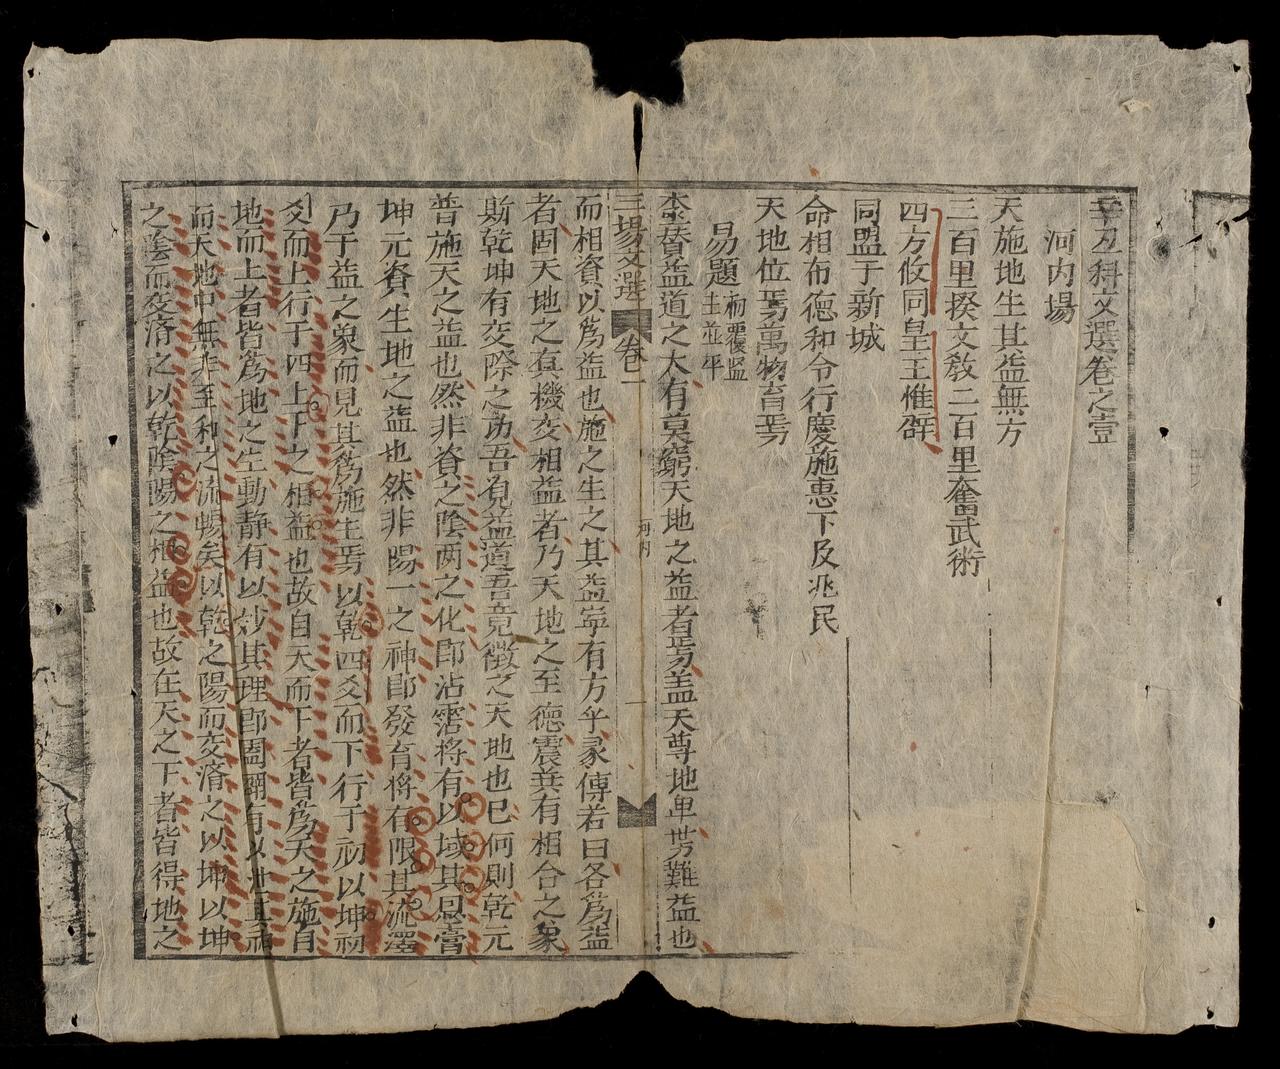 辛刃科文選卷之壹
河内場
天施地生其益無方
三百里揆文教二百里奮武衛
四方攸同皇王惟辟
同盟于新城
命相布德和令行慶施惠下及兆民
天地位焉萬物育焉
易題 初覆监 主並平
泰賛益道之大有莫窮天地之益者焉盖天尊地卑势難益也
三場文選 卷一 河内 一
而相資以爲益也施之生之其益寧有方乎彖傳若曰各爲益
者固天地之真機交相益者乃天地之至德震巽有相合之象
斯乾坤有交際之功吾觀益道吾竟徵之天地也已何則乾元
普施天之益也然非資之陰两之化即沾霈將有以域其恩膏
坤元資生地之益也然非陽一之神即發育将有限其流澤
乃于益之象而見其爲施生焉以乾四爻而下行于初以坤初
爻而上行于四上下之相益也故自天而下者皆爲天之施自
地而上者皆爲地之生動静有以妙其理即周翮有以
而天地中無非至和之流暢矣以乾之陽而交濟之以坤以坤
之陰而交濟之以乾陰陽之相益也故在天之下者皆得地之